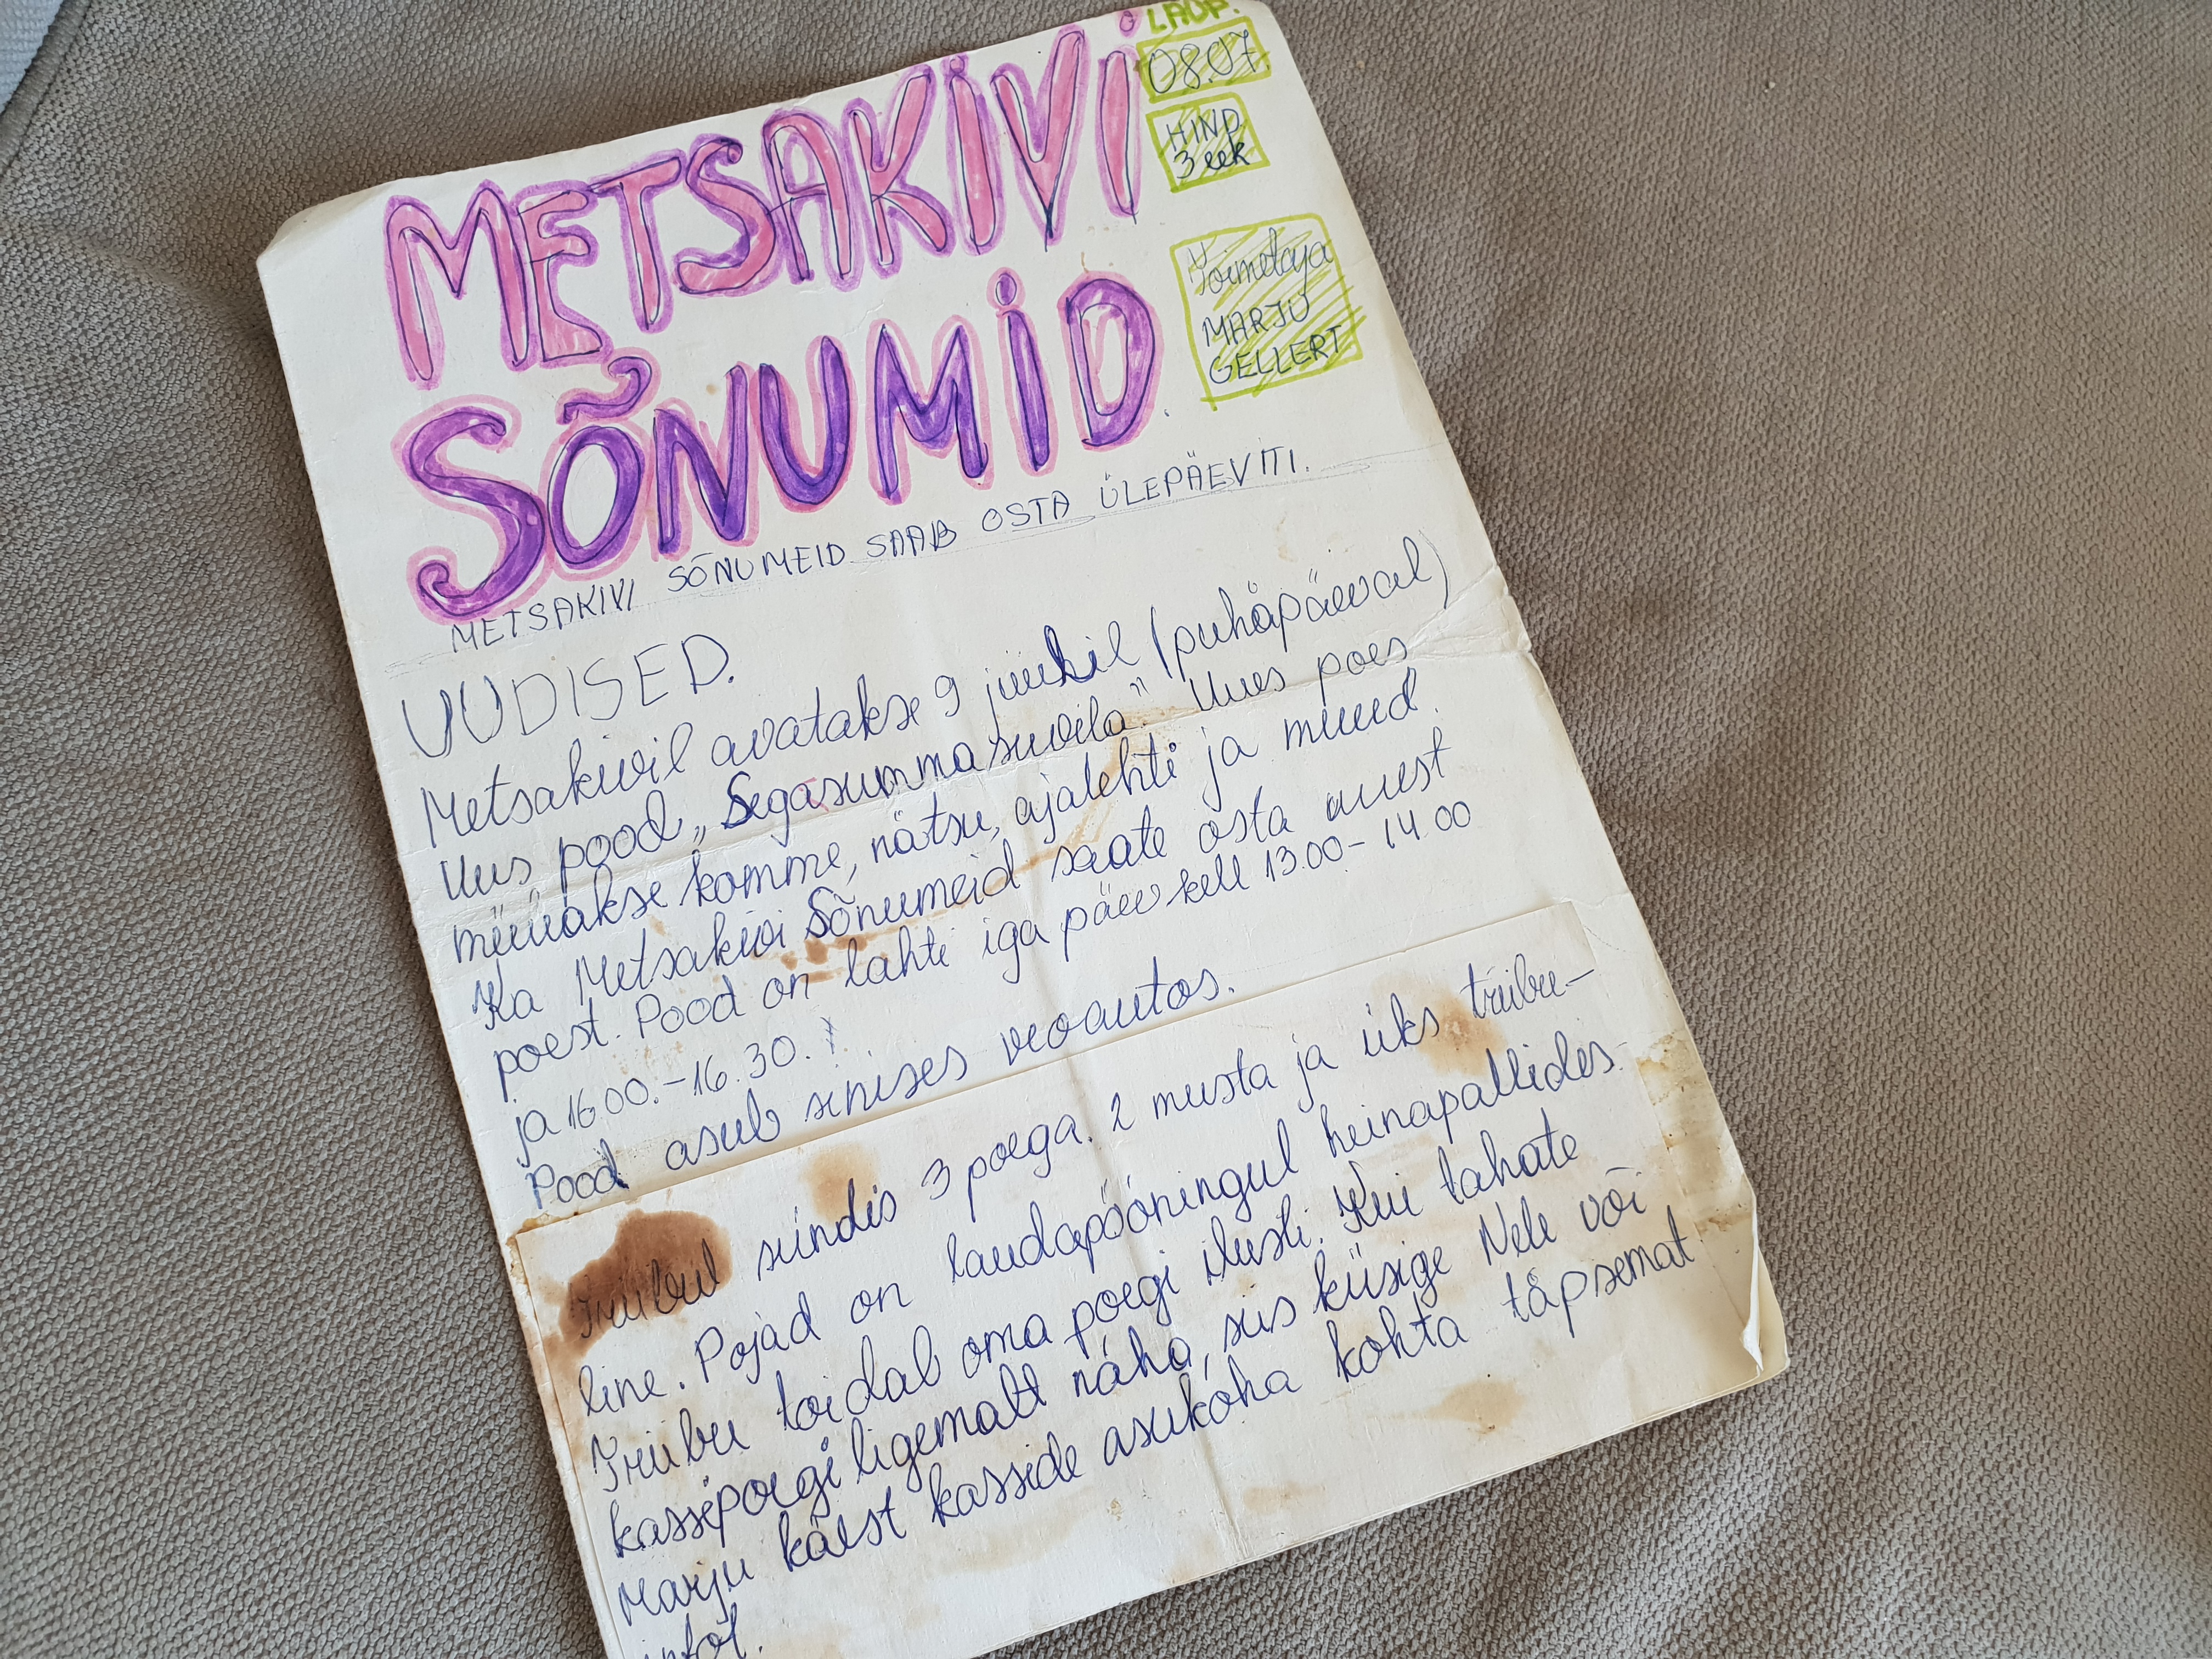 METSAKIVI
SÕNUMID
LAUP.
08.07.
HIND
3 eek
Toimetaja
MARJU
GELLERT
METSAKIVI SÕNUMEID SAAB OSTA ÜLEPÄEVITI.
UUDISED.
Metsakivil avatakse 9 juulil (puhäpäeval)
Uus pood „Segasummasuvila". Uues poes
müüakse komme, nätsu, ajalehti ja muud.
Ka Metsakivi Sõnumeid saate osta uuest
poest. Pood on lahti iga päev kell 13.00-14.00
ja 16.00.-16.30.
Pood asub sinises veoautos.
Triibul sündis 3 poega. 2 musta ja üks triibu-
line. Pojad on laudapööningul heinapallides.
Triibu toidab oma poegi ilusti. Kui tahate
kassepoegi ligemalt näha, siis küsige Nele või
Marju käest kasside asukoha kohta täpsemat
infot.